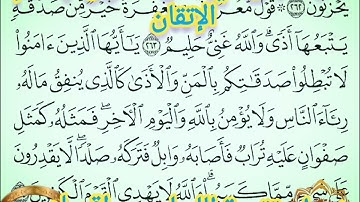 يَحْزَنُونَ ٢٦٢ ۞ قَوْلٌ مَّعْرُوفٌ وَمَغْفِرَةٌ خَيْرٌ مِّن صَدَقَةٍ
الإتقان
يَتْبَعُهَآ أَذًى ۗ وَٱللَّهُ غَنِىٌّ حَلِيمٌ ٢٦٣ يَـٰٓأَيُّهَا ٱلَّذِينَ ءَامَنُوا۟
لَا تُبْطِلُوا۟ صَدَقَـٰتِكُم بِٱلْمَنِّ وَٱلْأَذَىٰ كَٱلَّذِى يُنفِقُ مَالَهُۥ
رِئَآءَ ٱلنَّاسِ وَلَا يُؤْمِنُ بِٱللَّهِ وَٱلْيَوْمِ ٱلْـَٔاخِرِ ۖ فَمَثَلُهُۥ كَمَثَلِ
صَفْوَانٍ عَلَيْهِ تُرَابٌ فَأَصَابَهُۥ وَابِلٌ فَتَرَكَهُۥ صَلْدًا ۖ لَّا يَقْدِرُونَ
مِّمَّا كَسَبُوا۟ ۗ وَٱللَّهُ لَا يَهْدِى ٱلْقَوْمَ ٱلْكَـٰفِرِينَ